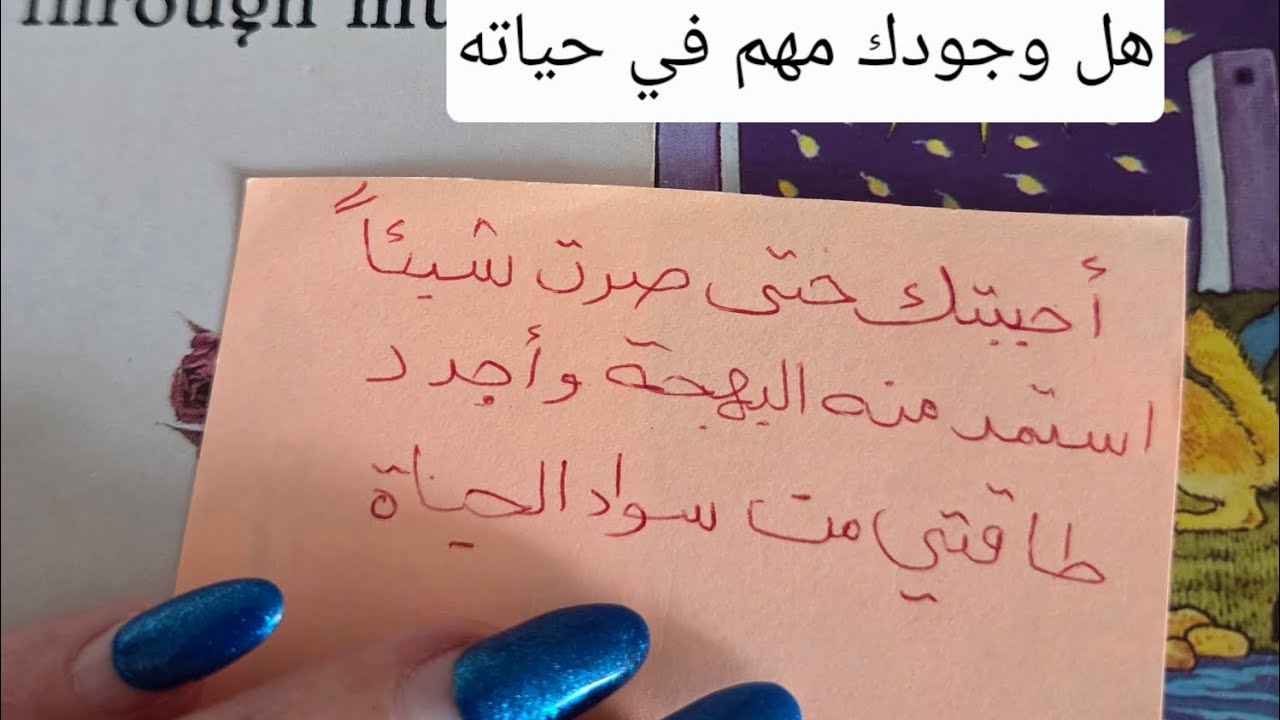 through mu
هل وجودك مهم في حياته
أحببتك حتى صرت شيئاً
استمد منه البهجة وأجدد
طاقتي من سواد الحياة